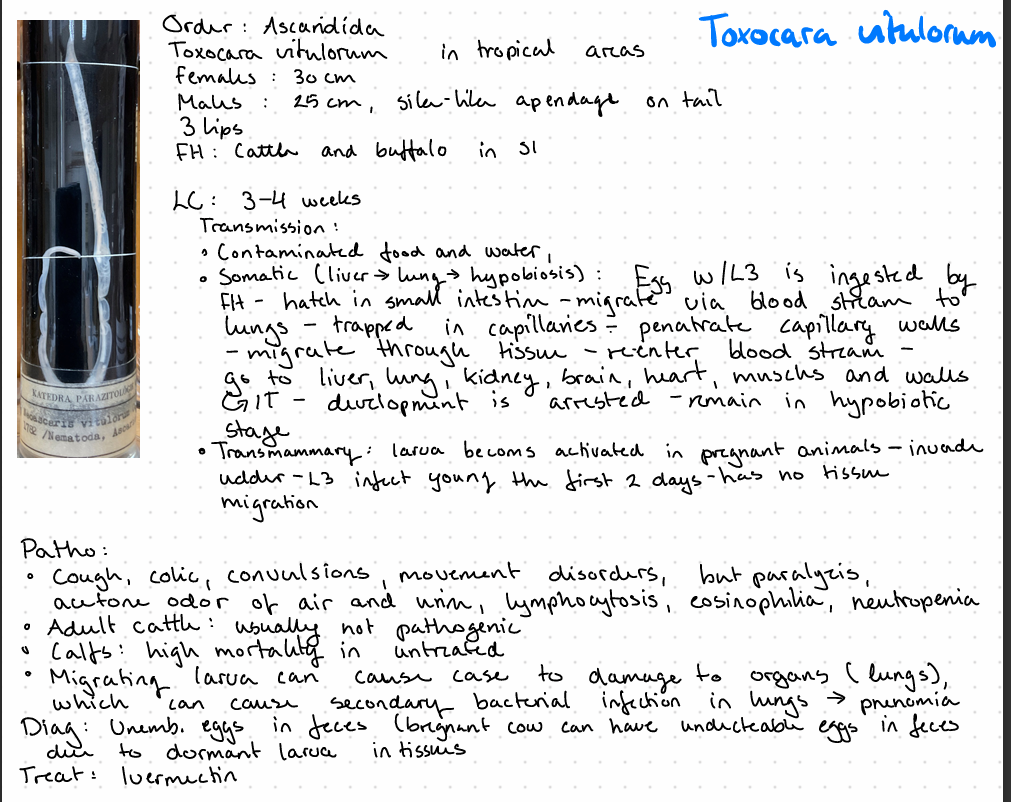 Toxocara vitulorum
Order: Ascaridida
Toxocara vitulorum in tropical areas
Females: 30 cm
Males: 25 cm, sike-like apendage on tail
3 lips
FH: Cattle and buffalo in SI
LC: 3-4 weeks
Transmission:
• Contaminated food and water,
• Somatic (liver → lung → hypobiosis): Egg w/L3 is ingested by
FH - hatch in small intestine - migrate via blood stream to
lungs - trapped in capillaries - penatrate capillary walls
- migrate through tissue - reenter blood stream -
go to liver, lung, kidney, brain, heart, muscles and walls
GIT - development is arrested - remain in hypobiotic
stage
• Transmammary: larva becoms activated in pregnant animals - invade
udder - L3 infect young the first 2 days - has no tissue
migration
KATEDRA PARAZITOLOG
vitulorum
1782 /Nematoda, Ascar
Patho:
• Cough, colic, convulsions, movement disorders, but paralyzis,
acetone odor of air and urin, lymphocytosis, eosinophilia, neutropenia
• Adult cattle: usually not pathogenic
• Calfs: high mortality in untreated
• Migrating larva can cause case to damage to organs (lungs),
which can cause secondary bacterial infection in lungs → pneumonia
Diag: Unemb. eggs in feces (pregnant cow can have undecteable eggs in feces
due to dormant larva in tissues
Treat: Ivermectin